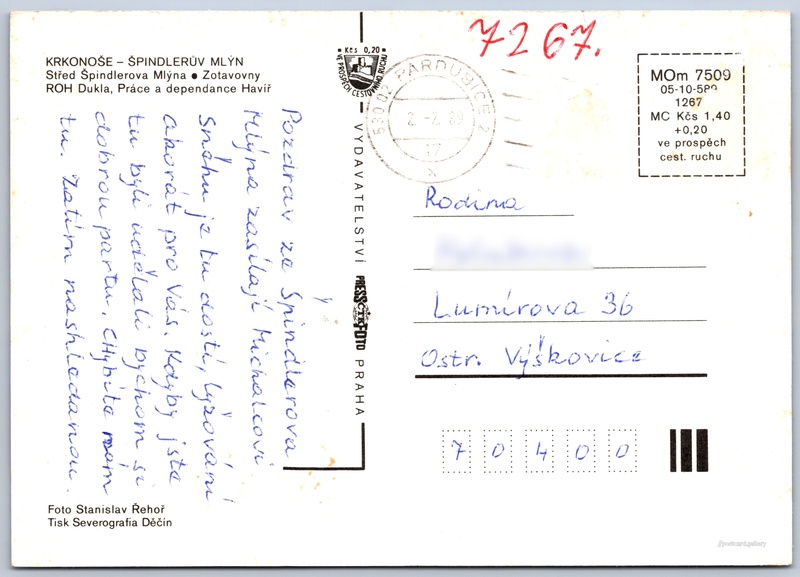 KRKONOŠE – ŠPINDLERŮV MLÝN
Střed Špindlerova Mlýna ● Zotavovny
ROH Dukla, Práce a dependance Havíř
Pozdrav ze Špindlerova
Mlýna zasílají Michalcovi
Sněhu je tu dosti, lyžování
akorát pro Vás. Kdyby jste
tu byli udělali bychom si
dobrou partu. Chybíte nám
tu. Zatím nashledanou.
Foto Stanislav Řehoř
Tisk Severografia Děčín
Kčs 0,20
VE PROSPĚCH CESTOVNÍHO RUCHU
VYDAVATELSTVÍ
PRESSFOTO
ČTK
PRAHA
530 02 PARDUBICE 2
2.-2. 89
17
x
7267.
MOm 7509
05-10-589
1267
MC Kčs 1,40
+0,20
ve prospěch
cest. ruchu
Rodina
Lumírova 36
Ostr. Výškovice
70400
//postcard.gallery